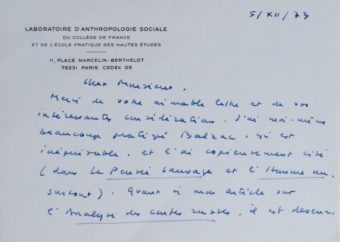 5/XII/73
LABORATOIRE D'ANTHROPOLOGIE SOCIALE
DU COLLÈGE DE FRANCE
ET DE L'ÉCOLE PRATIQUE DES HAUTES ÉTUDES
11, PLACE MARCELIN-BERTHELOT
75231 PARIS CEDEX 05
Cher Monsieur,
Merci de votre aimable lettre et de vos
intéressantes considérations. J'ai moi-même
beaucoup pratiqué Balzac, qui est
inépuisable, et l'ai copieusement cité
(dans la Pensée sauvage et l'Homme nu,
surtout). Quant à mon article sur
l'Analyse des contes russes, il est devenu